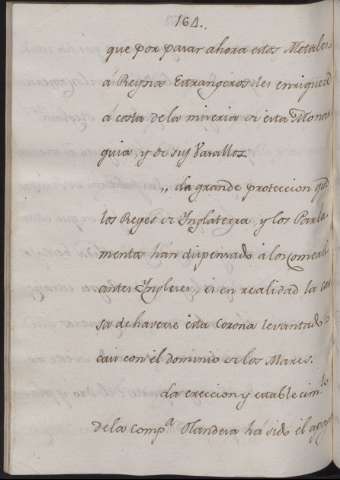 164.,
que por pasar ahora estos Metales
á Reynos Estrangeros les enriquece
á costa de la miseria de esta Monar
quia, y de sus Vasallos.
,, La grande proteccion que
los Reyes de Inglaterra y los Parla
mentos han dispensado á los Comerci
antes Ingleses, es en realidad la cau
sa de haverse esta Corona levantado
casi con el dominio de los Mares.
La ereccion y establecim.to
de la Comp.a Olandesa há sido el